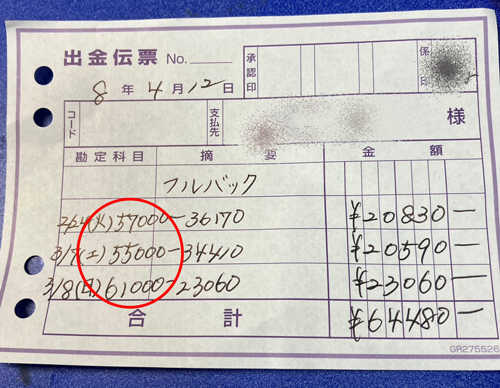 出金伝票 No.
承認印 係印
8年4月12日
コード 支払先 様
勘定科目 摘要 金額
フルバック
2/24(火)57000-36170 ¥20830-
3/7(土)55000-34410 ¥20590-
3/8(日)61000-23060 ¥23060-
合計 ¥64480-
GR275526